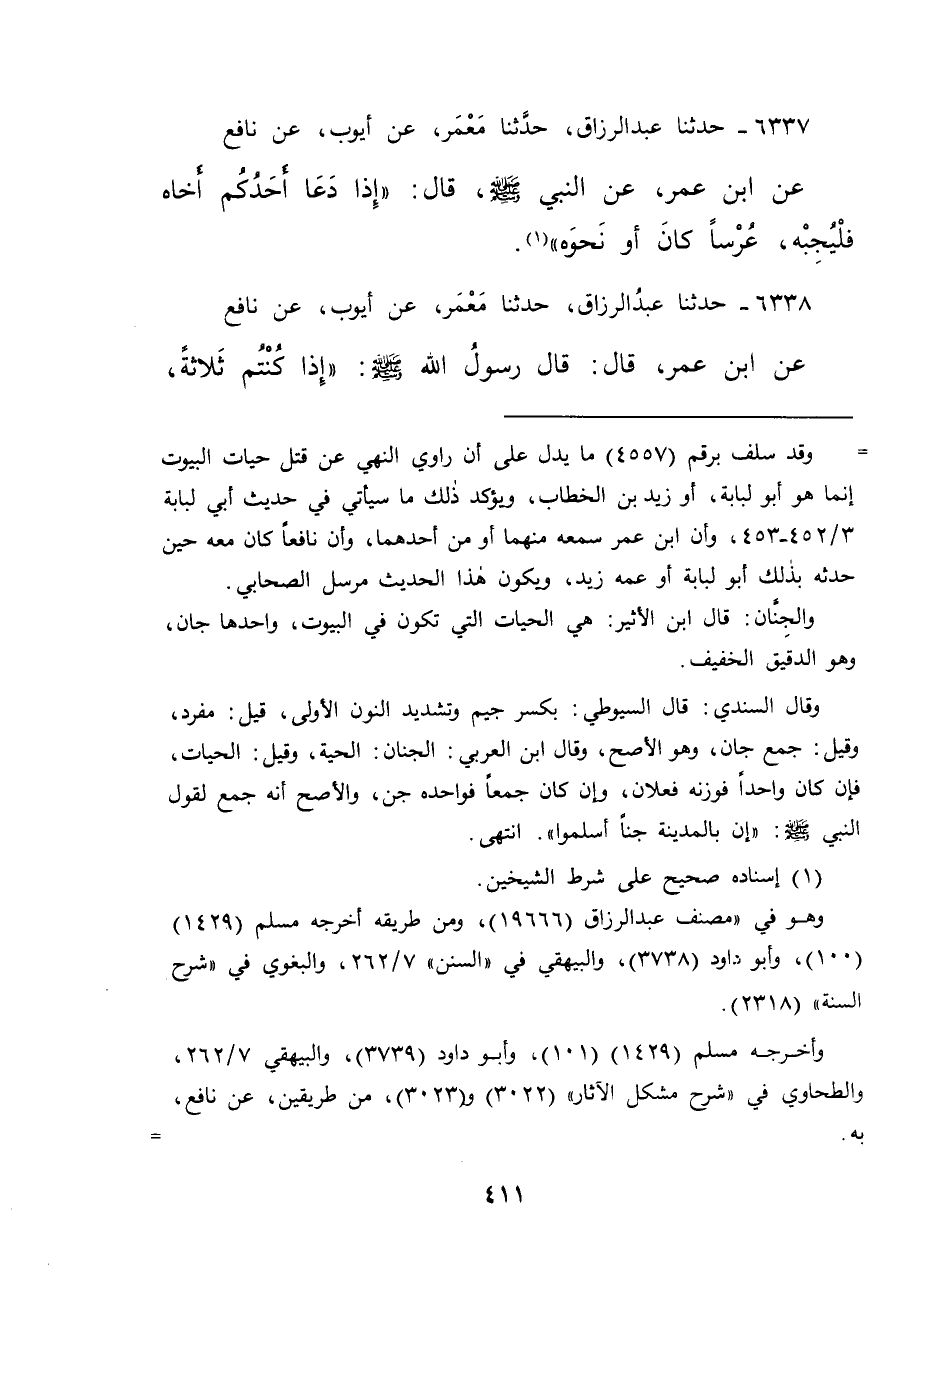 ٦٣٣٧ ـ حدثنا عبدالرزاق، حدَّثنا مَعْمَر، عن أيوب، عن نافع
عن ابن عمر، عن النبي ﷺ، قال: «إِذا دَعَا أَحَدُكُم أَخاه
فلْيُجِبْه، عُرْساً كانَ أو نَحوَه»(١).
٦٣٣٨ ـ حدثنا عبدُالرزاق، حدثنا مَعْمَر، عن أيوب، عن نافع
عن ابن عمر، قال: قال رسولُ الله ﷺ: «إِذا كُنْتُم ثَلاثةً،
= وقد سلف برقم (٤٥٥٧) ما يدل على أن راوي النهي عن قتل حيات البيوت
إنما هو أبو لبابة، أو زيد بن الخطاب، ويؤكد ذٰلك ما سيأتي في حديث أبي لبابة
٤٥٢/٣ـ٤٥٣، وأن ابن عمر سمعه منهما أو من أحدهما، وأن نافعاً كان معه حين
حدثه بذٰلك أبو لبابة أو عمه زيد، ويكون هٰذا الحديث مرسل الصحابي.
والجِنَّان: قال ابن الأثير: هي الحيات التي تكون في البيوت، واحدها جان،
وهو الدقيق الخفيف.
وقال السندي: قال السيوطي: بكسر جيم وتشديد النون الأولى، قيل: مفرد،
وقيل: جمع جان، وهو الأصح، وقال ابن العربي: الجنان: الحية، وقيل: الحيات،
فإن كان واحداً فوزنه فعلان، وإن كان جمعاً فواحده جن، والأصح أنه جمع لقول
النبي ﷺ: «إن بالمدينة جناً أسلموا». انتهى.
(١) إسناده صحيح على شرط الشيخين.
وهو في «مصنف عبدالرزاق (١٩٦٦٦)، ومن طريقه أخرجه مسلم (١٤٢٩)
(١٠٠)، وأبو داود (٣٧٣٨)، والبيهقي في «السنن» ٢٦٢/٧، والبغوي في «شرح
السنة» (٢٣١٨).
وأخرجه مسلم (١٤٢٩) (١٠١)، وأبو داود (٣٧٣٩)، والبيهقي ٢٦٢/٧،
والطحاوي في «شرح مشكل الآثار» (٣٠٢٢) و(٣٠٢٣)، من طريقين، عن نافع،
به. =
٤١١